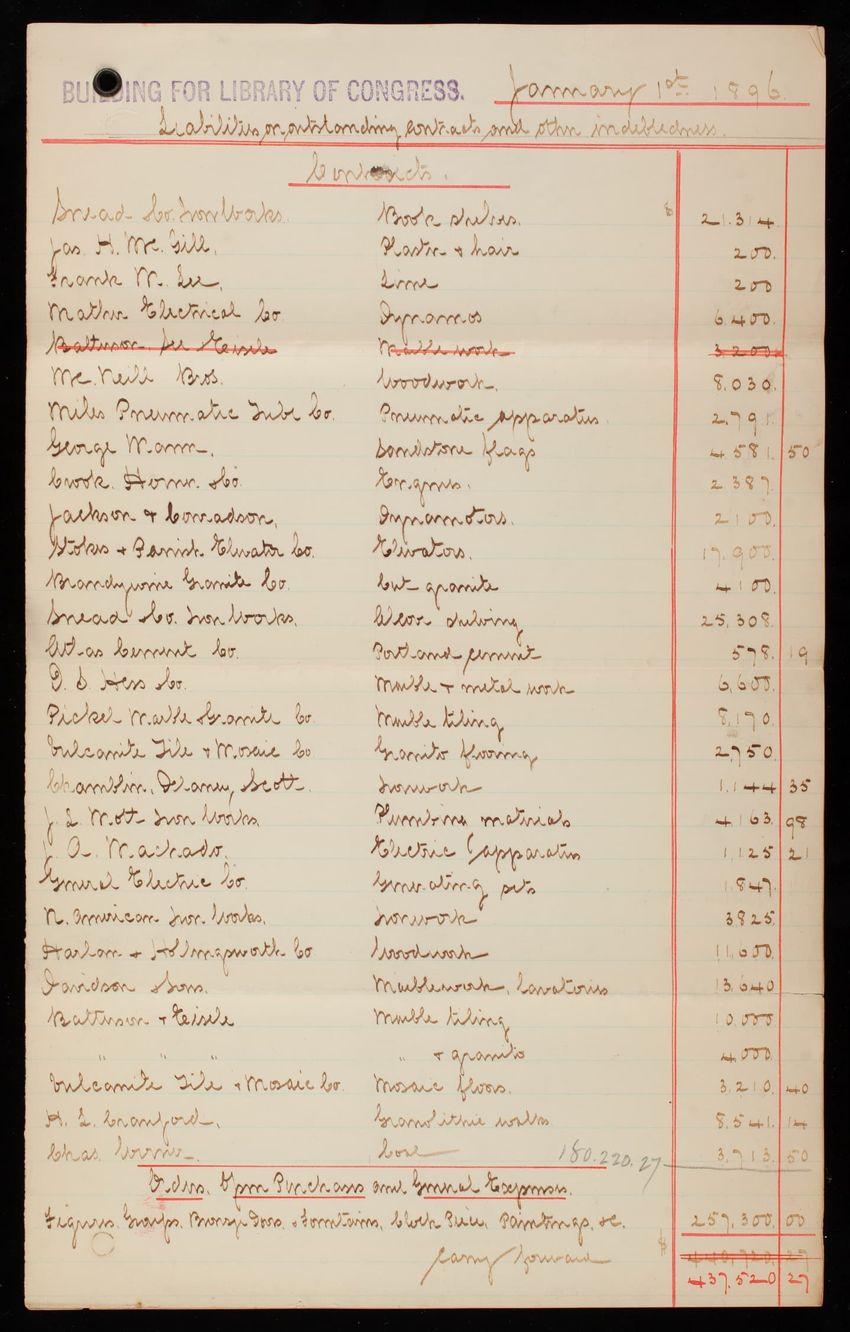 BUILDING FOR LIBRARY OF CONGRESS. January 1st 1896.
Liabilities on outstanding contracts and other indebtedness.
Contracts.
Snead & Co. Iron Works. Book shelves. $ 21.314
Jas. H. Mc.Gill, Plaster + hair 200.
Frank M. Lee, Lime 200
Mather Electrical Co Dynamos 6.400.
Batterson, See & Eisele Marble work 3 200.
Mc.Neill Bros. Woodwork. 8.030.
Miles Pneumatic Tube Co. Pneumatic apparatus. 2.791.
George Mann. Sandstone flags 4 581. 50
Crook. Horner. & Co. Engines. 2 387.
Jackson & Conradson, Dynamotors. 2 100.
Stokes + Parrish Elevator Co. Elevators. 17.900.
Brandywine Granite Co. Cut granite 4 100.
Snead & Co. Iron Works. Alcove shelving 25.308.
Atlas Cement Co. Portland cement 578. 19
D. S. Hess & Co. Marble + metal work 6,600.
Pickel Marble & Granite Co. Marble tiling 8,170.
Vulcanite Tile + Mosaic Co Granito flooring 2,750.
Chamblin, Delaney, Scott. Ironwork 1,144 35
J. L. Mott Iron Works. Plumbing materials 4.163. 98
J. A. Machado. Electric apparatus 1,125 21
General Electric Co. Generating sets 1.847.
N. American Iron Works. Ironwork 3825.
Harlan + Hollingsworth Co Woodwork 11,600.
Davidson & Sons. Marblework, Lavatories 13.640
Batterson + Eisele Marble tiling 10.000
" " " " + granito 4,000.
Vulcanite Tile + Mosaic Co. Mosaic floors. 3,210. 40
H. L. Cranford. Granolithic walks 8.541. 14
Chas. Werner. Coal 180.220.27 3,713. 50
Orders. Open Purchases and General Expenses.
Figures. Groups. Bronze Doors. & Fountains, Clock Piece, Paintings, &c. 257,300. 00
Carry Forward $ 440,720. 27
437,520 27